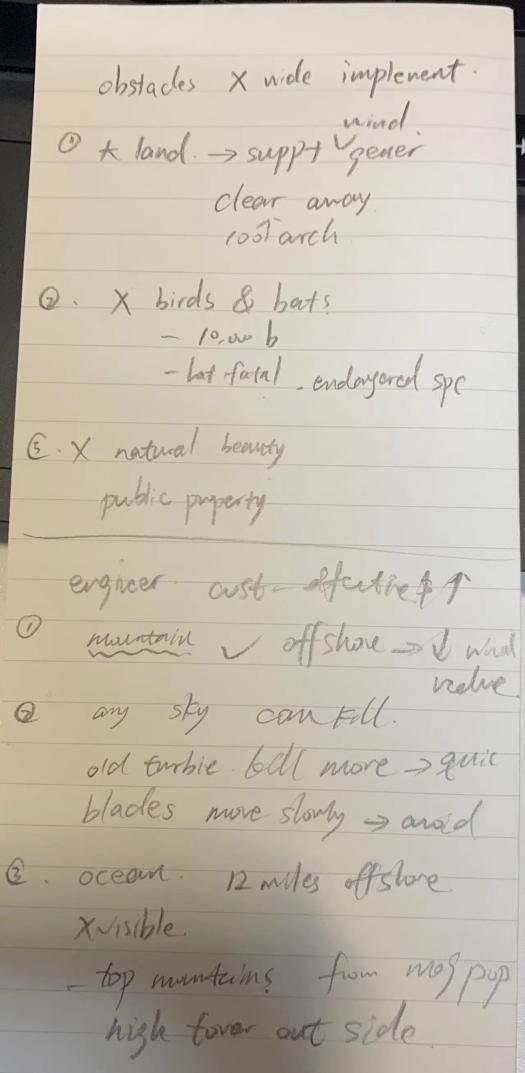 obstacles X wide implement.
wind
① * land. → suppt ✓ gener
clear away
100T arch
②. X birds & bats
- 10,000 b
- bat fatal - endangered spe
③. X natural beauty
public property
engieer cost-effective $ ↑
① mountain ✓ offshore → ↓ wind
② any sky can kill.
old turbie kill more → quic
blades move slowly → avoid
③. ocean. 12 miles offshore
X visible.
- top mountains from maj pop
high tover out side